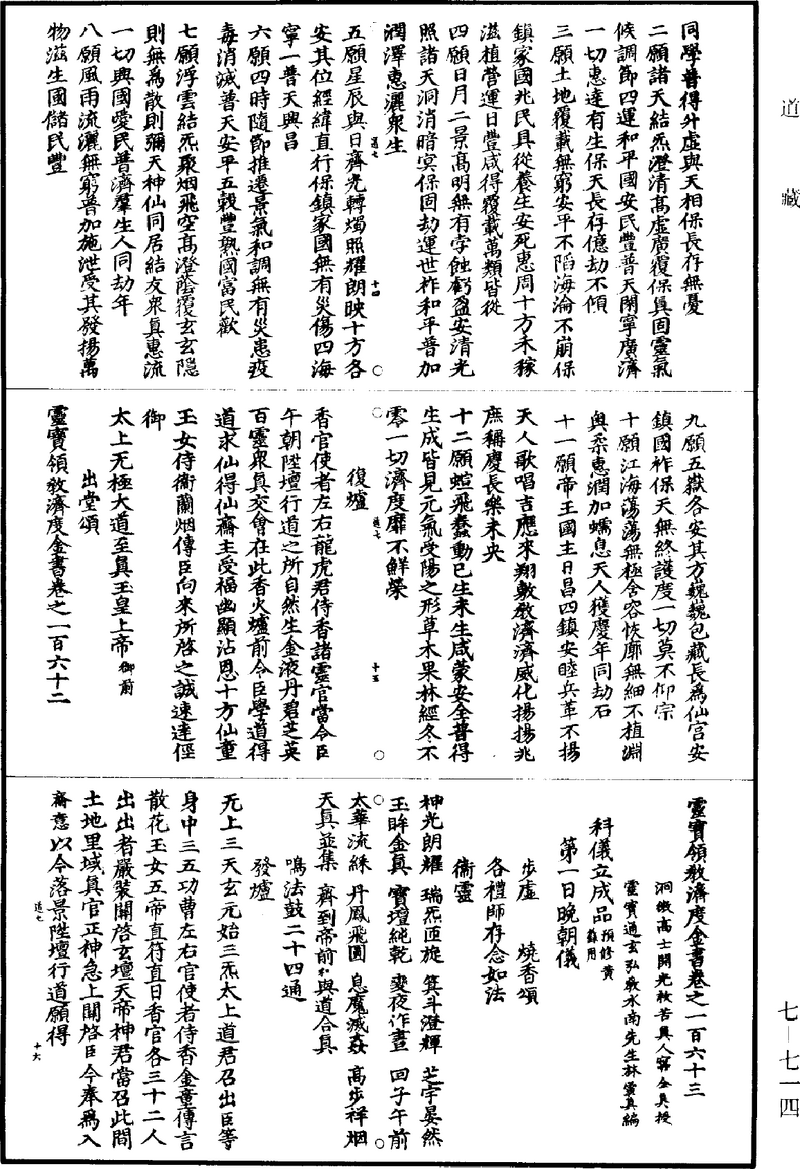 道藏
同學普得升虛與天相保長存無憂
二願諸天結炁澄清高虛廣覆保真固靈氣
候調節四運和平國安民豐普天閑寧廣濟
一切惠達有生保天長存億劫不傾
三願土地覆載無窮安平不陷海淪不崩保
鎮家國兆民具從養生安死惠周十方禾稼
滋植營運日豐咸得覆載萬類皆從
四願日月二景高明無有孛蝕虧盈安清光
照諸天洞消暗冥保固劫運世祚和平普加
潤澤惠灑衆生
道七 十四
五願星辰與日齊光轉燭照耀朗映十方各
安其位經緯直行保鎮家國無有災傷四海
寧一普天興昌
六願四時隨節推遷景氣和調無有災患疫
毒消滅普天安平五穀豐熟國富民歡
七願浮雲結炁聚烟飛空高澄蔭覆玄玄隱
則無為散則彌天神仙同居結友衆真惠流
一切與國愛民普濟羣生人同劫年
八願風雨流灑無窮普加施泄受其發揚萬
物滋生國儲民豐
九願五嶽各安其方巍巍包藏長為仙宫安
鎮國祚保天無終護度一切莫不仰宗
十願江海蕩蕩無極含容恢廓無細不植淵
奥柔惠潤加蠕息天人獲慶年同劫石
十一願帝王國主日昌四鎮安睦兵革不揚
天人歌唱吉應來翔敷教濟濟威化揚揚兆
庶稱慶長樂未央
十二願蝖飛蠢動已生未生咸蒙安全普得
生成皆見元氣受陽之形草木果林經冬不
零一切濟度靡不鮮榮
道七 十五
復爐
香官使者左右龍虎君侍香諸靈官當令臣
午朝陞壇行道之所自然生金液丹碧芝英
百靈衆真交會在此香火爐前令臣學道得
道求仙得仙齋主受福幽顯沾恩十方仙童
玉女侍衛蘭烟傳臣向來所啓之誠速達徑
御
太上无極大道至真玉皇上帝御前
出堂頌
靈寶領教濟度金書卷之一百六十二
靈寶領教濟度金書卷之一百六十三
洞微高士開光救苦真人甯全真授
靈寶通玄弘教水南先生林靈真編
科儀立成品預修黄籙用
第一日晚朝儀
步虛 燒香頌
各禮師存念如法
衛靈
神光朗耀 瑞炁匝旋 箕斗澄輝 芝宇晏然
玉眸金真 寶壇純乾 變夜作晝 回子午前
太華流綵 丹鳳飛圓 息魔滅姦 高步祥烟
天真並集 齊到帝前 與道合真
鳴法鼓二十四通
發爐
无上三天玄元始三炁太上道君召出臣等
身中三五功曹左右官使者侍香金童傳言
散花玉女五帝直符直日香官各三十二人
出出者嚴裝關啓玄壇天帝神君當召此間
土地里域真官正神急上關啓臣今奉為入
齋意以今落景陞壇行道願得
道七 十六
七—七一四